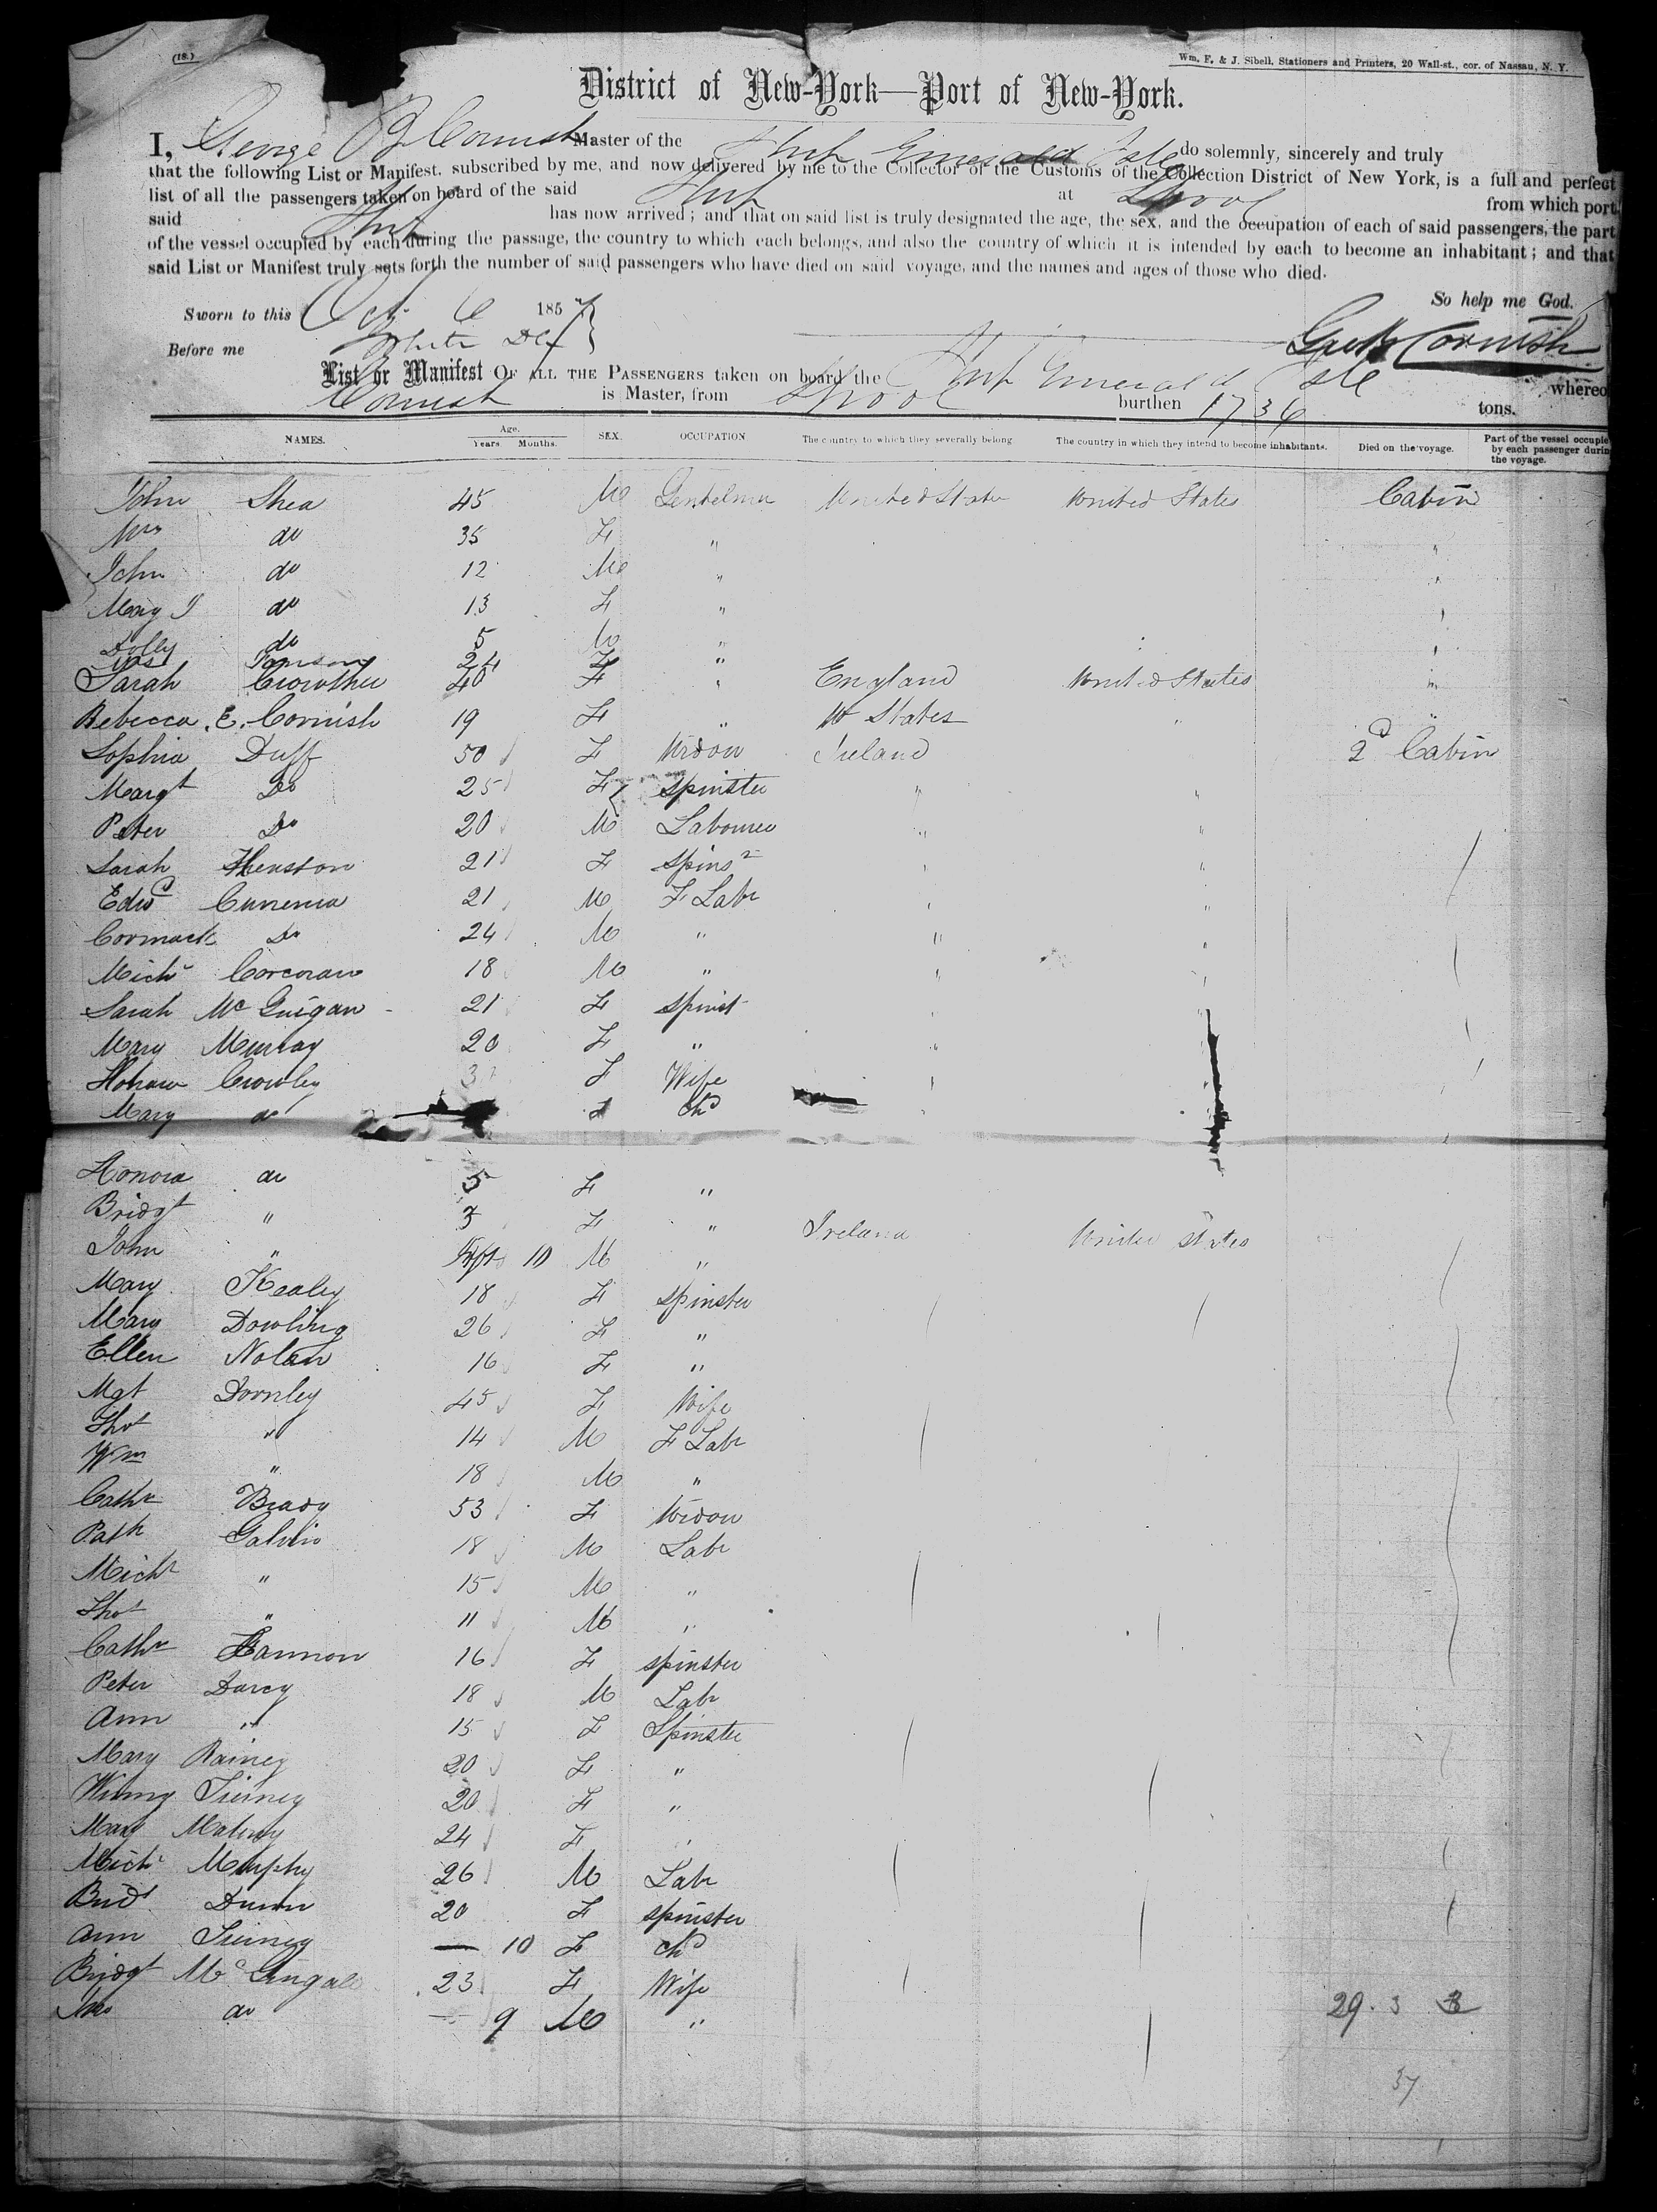 (18.)
Wm. F. & J. Sibell, Stationers and Printers, 20 Wall-st., cor. of Nassau, N. Y.
District of New-York—Port of New-York.
I, George B Cornish Master of the Ship Emerald Isle do solemnly, sincerely and truly
that the following List or Manifest, subscribed by me, and now delivered by me to the Collector of the Customs of the Collection District of New York, is a full and perfect
list of all the passengers taken on board of the said Ship at Lpool from which port
said Ship has now arrived; and that on said list is truly designated the age, the sex, and the occupation of each of said passengers, the part
of the vessel occupied by each during the passage, the country to which each belongs, and also the country of which it is intended by each to become an inhabitant; and that
said List or Manifest truly sets forth the number of said passengers who have died on said voyage, and the names and ages of those who died.
So help me God.
Sworn to this Oct 6 1857
Before me
Cornish
List or Manifest OF ALL THE PASSENGERS taken on board the Ship Emerald Isle whereo
Cornish is Master, from Lpool burthen 1736 tons.
NAMES. Age. Years. Months. SEX. OCCUPATION The country to which they severally belong The country in which they intend to become inhabitants. Died on the voyage. Part of the vessel occupie by each passenger durin the voyage.
John Shea 45 M United State United States Cabin
Mrs do 35 F "
John do 12 M "
Mary J do 13 F "
Dolly do 5 "
24 F "
Sarah Crowther 40 F " England United States "
Rebecca E. Cornish 19 F " U States " "
Sophia Duff 50 F Widow Ireland 2d Cabin
Margt Do 25 F spinster " "
Peter Do 20 M Labourer " "
Sarah 21 F spinsr " "
Edwd 21 M F Labr " "
Cormack Do 24 M " " "
Michl Corcoran 18 M " " "
Sarah McGuigan 21 F spinst "
Mary Murray 20 F " "
Crowley F Wife "
Mary do F chd "
Honora do 5 F "
Bridgt " 3 F " Ireland United States
John " 10 M "
Mary Kealey 18 F spinster
Mary Dowling 26 F "
Ellen Nolan 16 F "
Mgt Dornley 45 F Wife
Thos " 14 M F Labr
Wm " 18 M "
Cathn Brady 53 F Widow
Patk Galvin 18 M Labr
Michl " 15 M "
Thos " 11 M "
Cathn 16 F spinster
Peter Darcy 18 M Labr
Ann " 15 F Spinster
Mary Rainey 20 F "
Winny Tierney 20 F "
Mary 24 F "
Michl Murphy 26 M Labr
Bridt Dunn 20 F spinster
Ann Tierney — 10 F chd
Bridgt 23 F Wife
do — 9 M "
29. 3
37